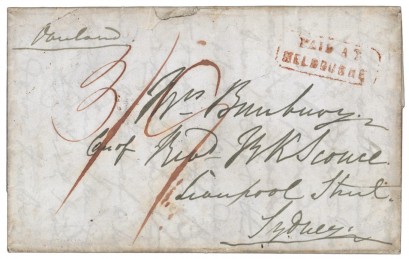 Overland
PAID AT
MELBOURNE
3/9
Mrs Bunbury
Care of Revd R K Sconce
Liverpool Street
Sydney